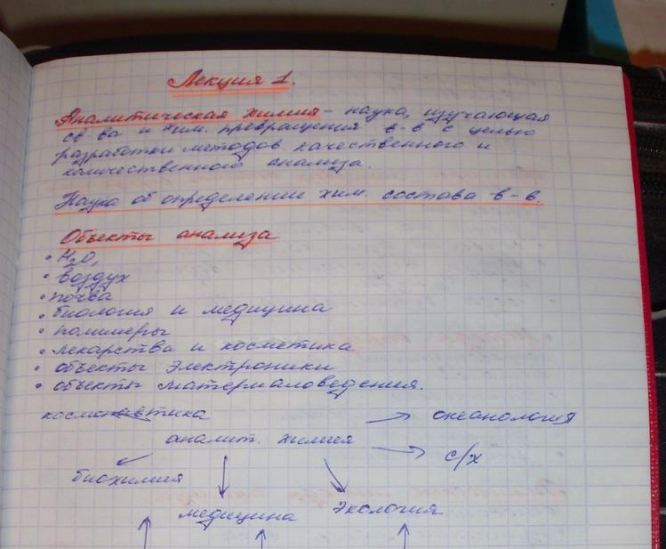 Лекция 1.
Аналитическая химия - наука, изучающая
св-ва и хим. превращения в-в с целью
разработки методов качественного и
количественного анализа.
Наука об определении хим. состава в-в.
Объекты анализа
• H₂O,
• воздух
• почва
• биология и медицина
• полимеры
• лекарства и косметика
• объекты электроники
• объекты материаловедения.
космонавтика океанология
аналит. химия
с/х
биохимия
медицина экология